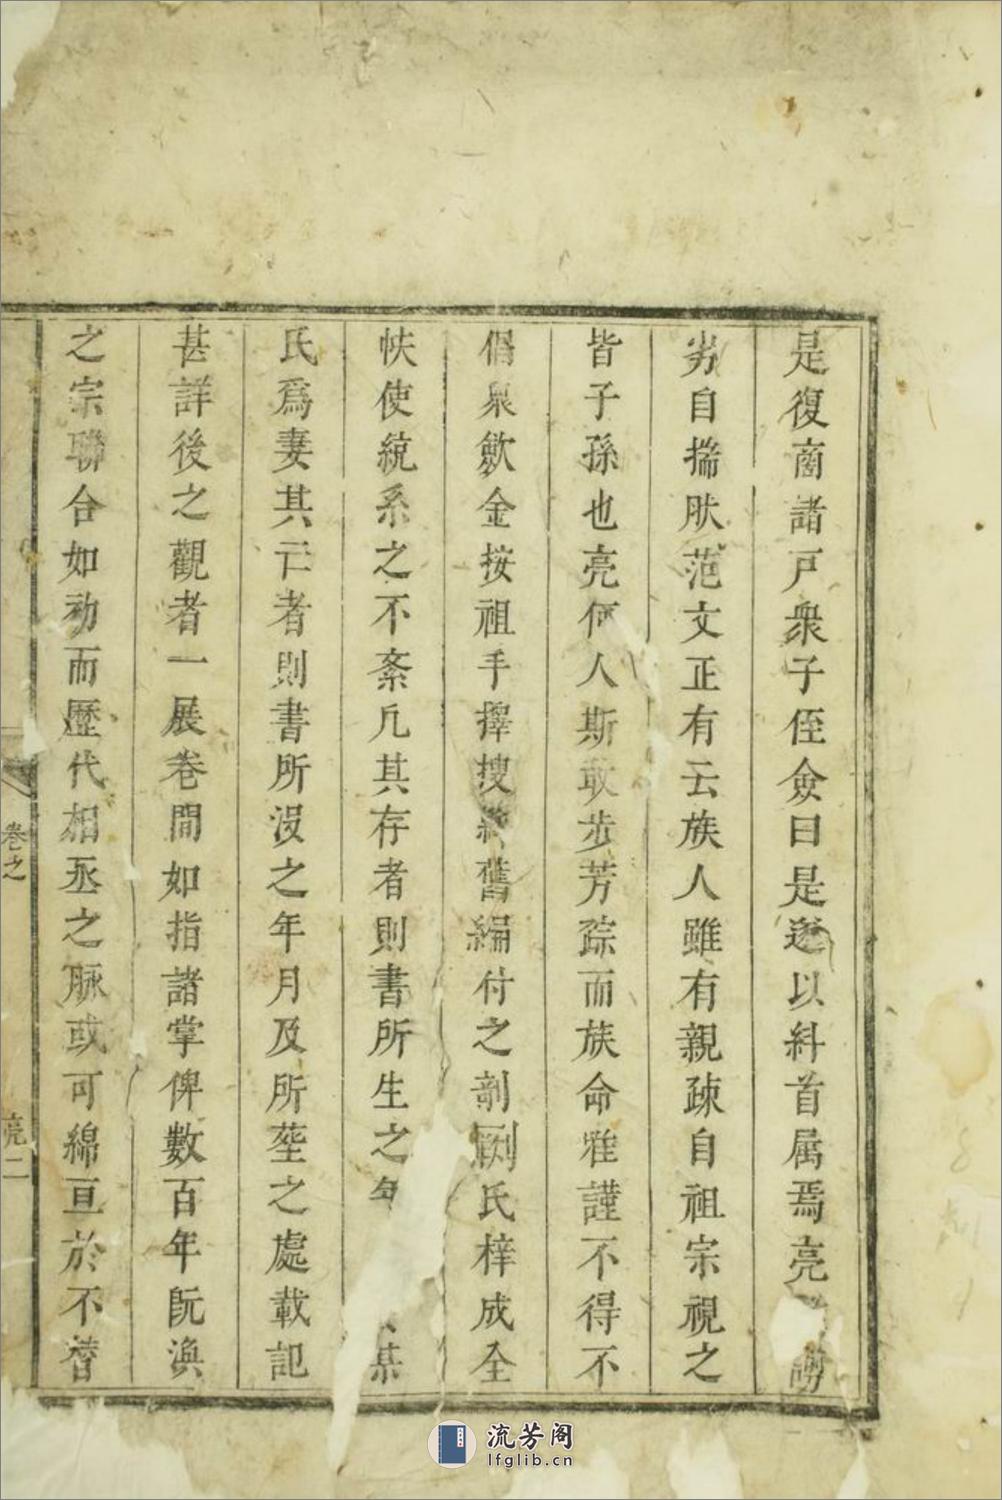 是復啇諸戸衆子侄僉曰是遂以糾首属焉亮謝
劣自揣肤范文正有云族人雖有親疎自祖宗視之
皆子孫也亮何人斯敢步芳踪而族命难謹不得不
倡泉歛金按祖手擇搜舊編付之剖劂氏梓成全
帙使統系之不紊凢其存者則書所生之年某
氏爲妻其亡者則書所沒之年月及所塟之處載記
甚詳後之觀者一展卷間如指諸掌俾數百年既渙
之宗聯合如初而歷代相丞之脉或可綿亘於不替
卷之
亮二
流芳阁
lfglib.cn